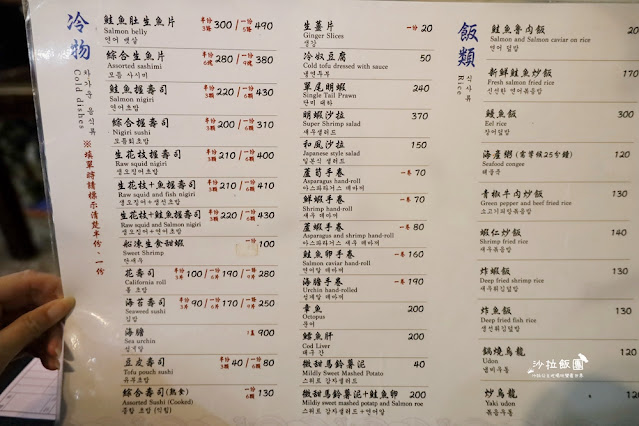 冷物
차가운 음식류
Cold dishes
※填單時請標示清楚半份、一份
鮭魚肚生魚片 半份3片 300 / 一份5片 490
Salmon belly
연어 뱃살
綜合生魚片 半份6塊 280 / 一份9塊 380
Assorted sashimi
모듬 사시미
鮭魚握壽司 半份3顆 220 / 一份6顆 430
Salmon nigiri
연어초밥
綜合握壽司 半份3顆 200 / 一份6顆 310
Nigiri sushi
모듬회초밥
生花枝握壽司 半份3顆 210 / 一份6顆 400
Raw squid nigiri
생오징어초밥
生花枝+魚握壽司 半份3顆 210 / 一份6顆 410
Raw squid and fish nigiri
생오징어+생선초밥
生花枝+鮭魚握壽司 半份3顆 220 / 一份6顆 430
Raw squid and Salmon nigiri
생오징어+연어초밥
船凍生食甜蝦 一份 100
Sweet Shrimp
단새우
花壽司
California roll
롤 초밥
100 / 190 / 280
海苔壽司
Seaweed sushi
김밥
90 / 170 / 250
海膽 900
Sea urchin
성게알
豆皮壽司 半份3顆 40 / 一份6顆 80
Tofu pouch sushi
유부초밥
綜合壽司(熟食) 一份6顆 130
Assorted Sushi (Cooked)
종합 초밥 (익힘)
生薑片 一份 20
Ginger Slices
생강
冷奴豆腐 50
Cold tofu dressed with sauce
냉연두부
單尾明蝦 240
Single Tail Prawn
단미 대하
明蝦沙拉 370
Super Shrimp salad
새우샐러드
和風沙拉 150
Japanese style salad
일본식 샐러드
蘆筍手卷 一卷 70
Asparagus hand-roll
아스파라거스 데마끼
鮮蝦手卷 一卷 70
Shrimp hand-roll
새우 데마끼
蘆蝦手卷 一卷 80
Asparagus and shrimp hand-roll
아스파라거스 새우 데마끼
鮭魚卵手卷 一卷 160
Salmon caviar hand-roll
연어알 데마끼
海膽手卷 一卷 190
Urchin hand-rolled
성게알 데마끼
章魚 200
Octopus
문어
鱈魚肝 200
Cod Liver
대구 간
微甜馬鈴薯泥 100
Mildly Sweet Mashed Potato
스위트 감자샐러드
微甜馬鈴薯泥+鮭魚卵 200
Mildly sweet mashed Potato and Salmon roe
스위트 감자샐러드+연어알
飯類
식사류
Rice
鮭魚魯肉飯 200
Salmon and Salmon caviar on rice
연어 덮밥
新鮮鮭魚炒飯 170
Fresh salmon fried rice
신선한 연어볶음밥
鰻魚飯 300
Eel rice
장어덮밥
海產粥(需等候25分鐘) 120
Seafood congee
해물죽
青椒牛肉炒飯 130
Green pepper and beef fried rice
소고기피망볶음밥
蝦仁炒飯 130
Shrimp fried rice
새우볶음밥
炸蝦飯 130
Deep fried shrimp rice
새우튀김덮밥
炸魚飯 130
Deep fried fish rice
생선튀김덮밥
鍋燒烏龍
Udon
냄비우동
炒烏龍 120
Yaki udon
볶음우동
沙拉飯團